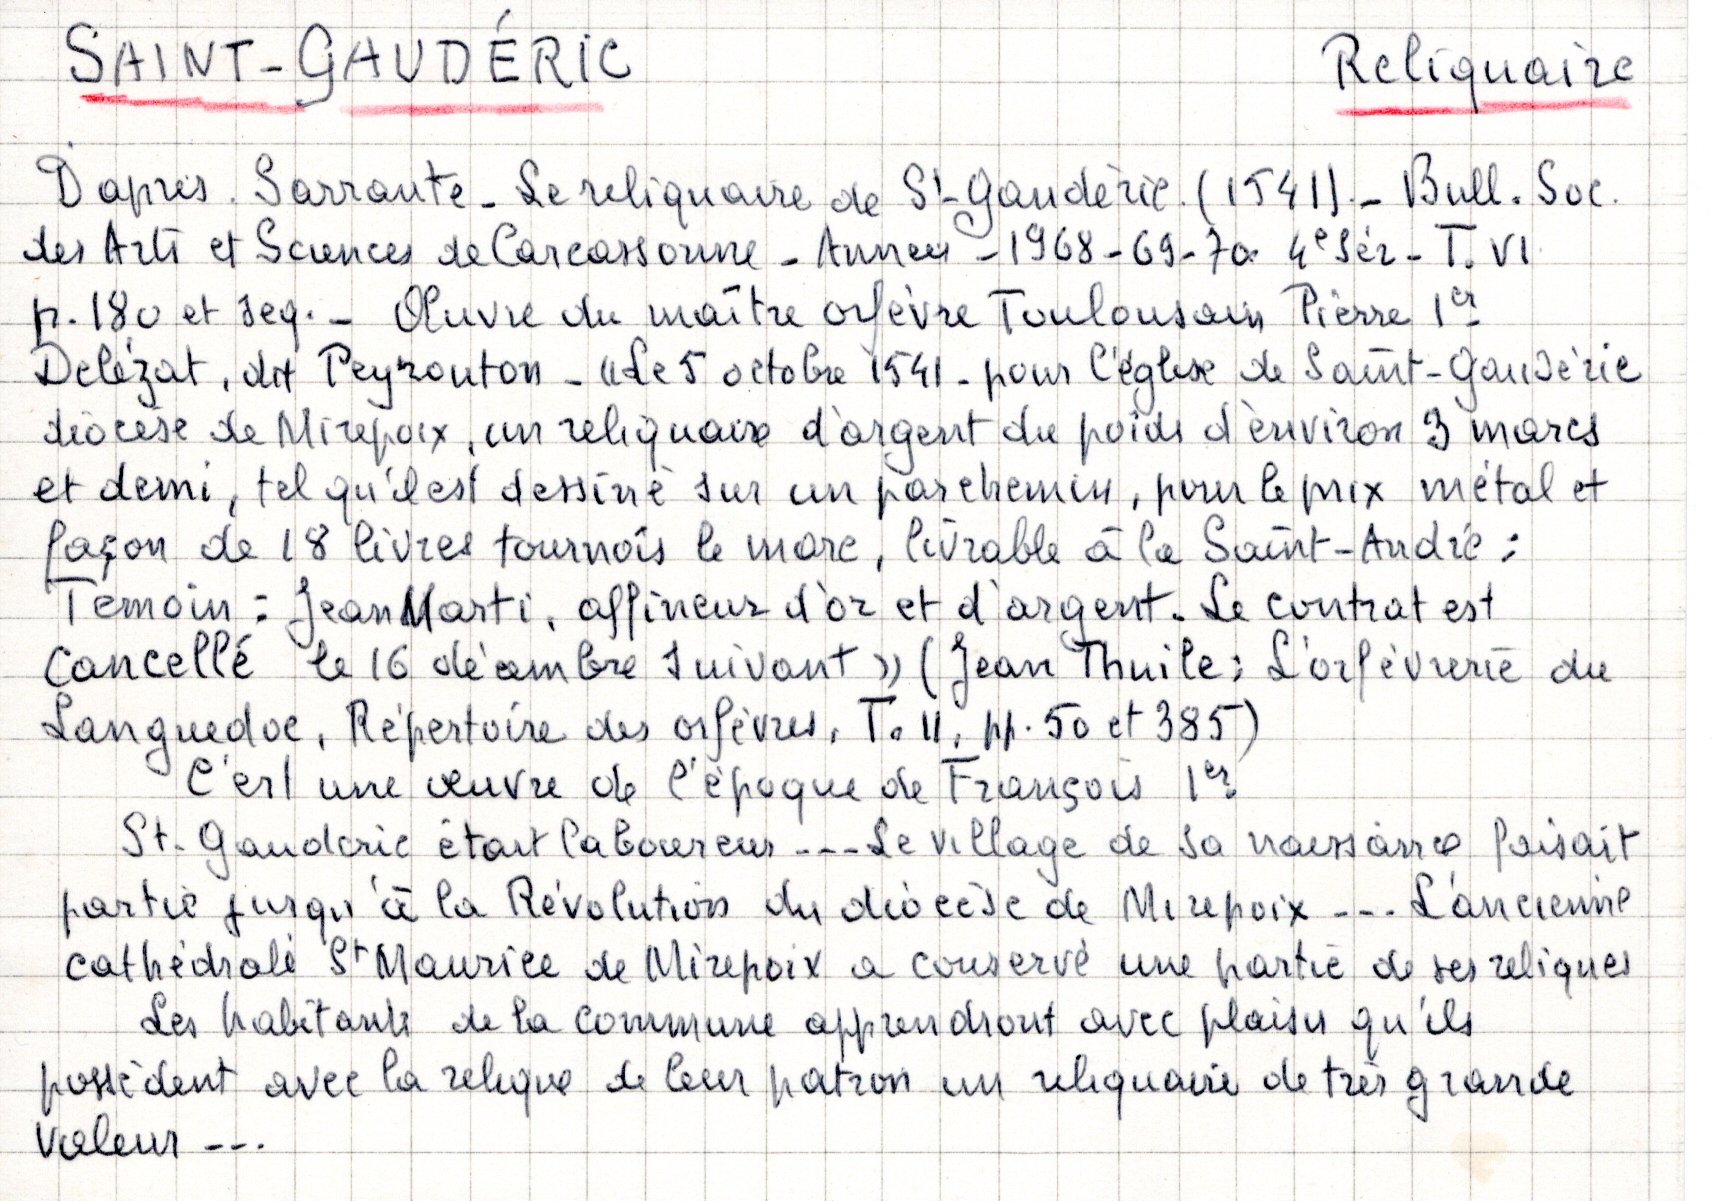 SAINT-GAUDÉRIC Reliquaire
D'après. Sarraute - Le reliquaire de St-Gaudéric. (1541). - Bull. Soc.
des Arts et Sciences de Carcassonne - Années - 1968-69-70. 4e Sér - T. VI
p. 180 et seq. - Œuvre du maître orfèvre Toulousain Pierre 1er
Delézat, dit Peyrouton - "Le 5 octobre 1541 - pour l'église de Saint-Gaudéric
diocèse de Mirepoix, un reliquaire d'argent du poids d'environ 3 marcs
et demi, tel qu'il est dessiné sur un parchemin, pour le prix métal et
façon de 18 livres tournois le marc, livrable à la Saint-André :
Témoin : Jean Marti, affineur d'or et d'argent. Le contrat est
cancellé le 16 décembre suivant » (Jean Thuile : L'orfèvrerie du
Languedoc, Répertoire des orfèvres, T. II, pp. 50 et 385)
C'est une œuvre de l'époque de François 1er
St-Gaudéric était laboureur --- Le village de sa naissance faisait
partie jusqu'à la Révolution du diocèse de Mirepoix --- L'ancienne
cathédrale St Maurice de Mirepoix a conservé une partie de ses reliques
Les habitants de la commune apprendront avec plaisir qu'ils
possèdent avec la relique de leur patron un reliquaire de très grande
valeur ---